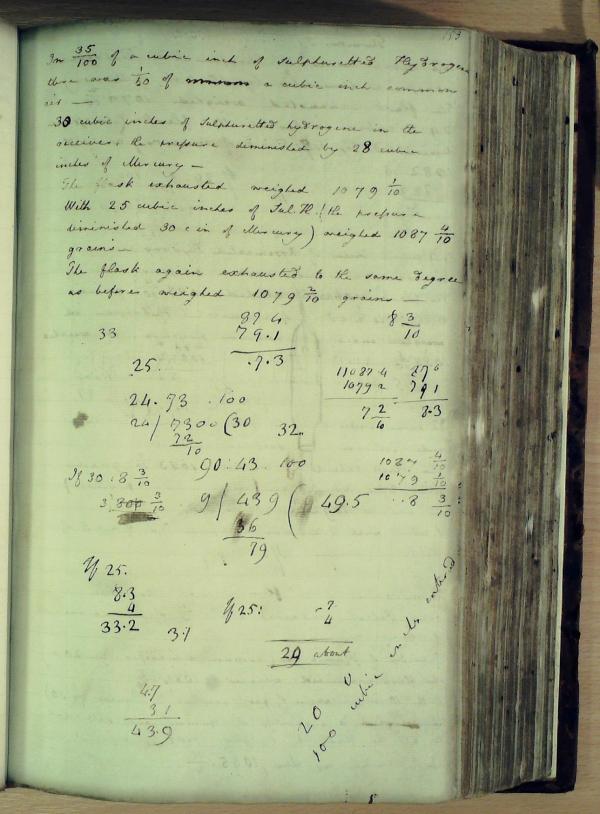 153
In 35/100 of a cubic inch of Sulphuretted Hydrogene
there was 1/10 of a cubic inch common
air —
30 cubic inches of Sulphuretted hydrogene in the
receiver, the pressure diminished by 28 cubic
inches of Mercury —
The flask exhausted weighed 1079 1/10
With 25 cubic inches of Sul. H. (the pressure
diminished 30 c in of Mercury) weighed 1087 4/10
grains —
The flask again exhausted to the same degree
as before weighed 1079 2/10 grains —
33
87 4
79.1
.7.3
8 3/10
25.
11087.4
1079 2
7 2/10
87 6
791
8.3
24.73 .100
24/7300(30
72/10
32.
If 30 : 8 3/10
3 800 3/10
90:43. 100
9/439(49.5
36
79
1087 4/10
1079 1/10
..8 3/10
If 25.
8.3
4
33.2
31
If 25:
-7
4
29 about
47
31
43.9
20
100 cubic in